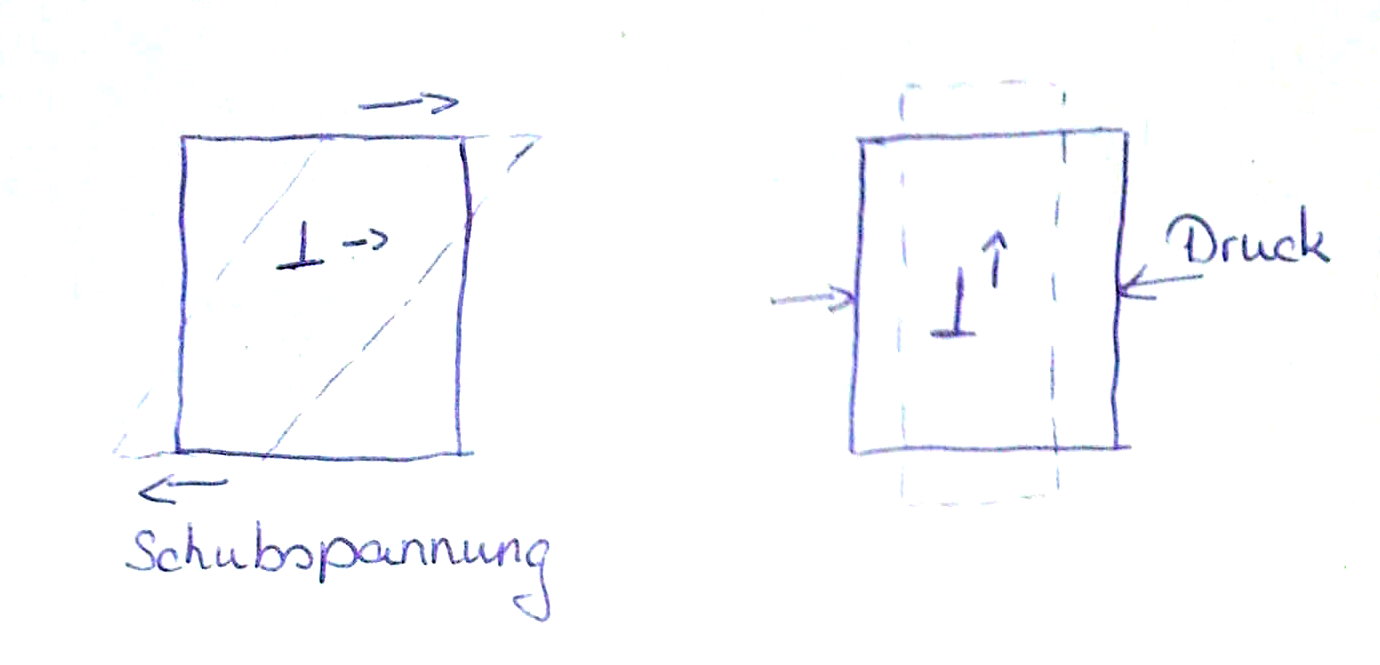 Schubspannung
Druck